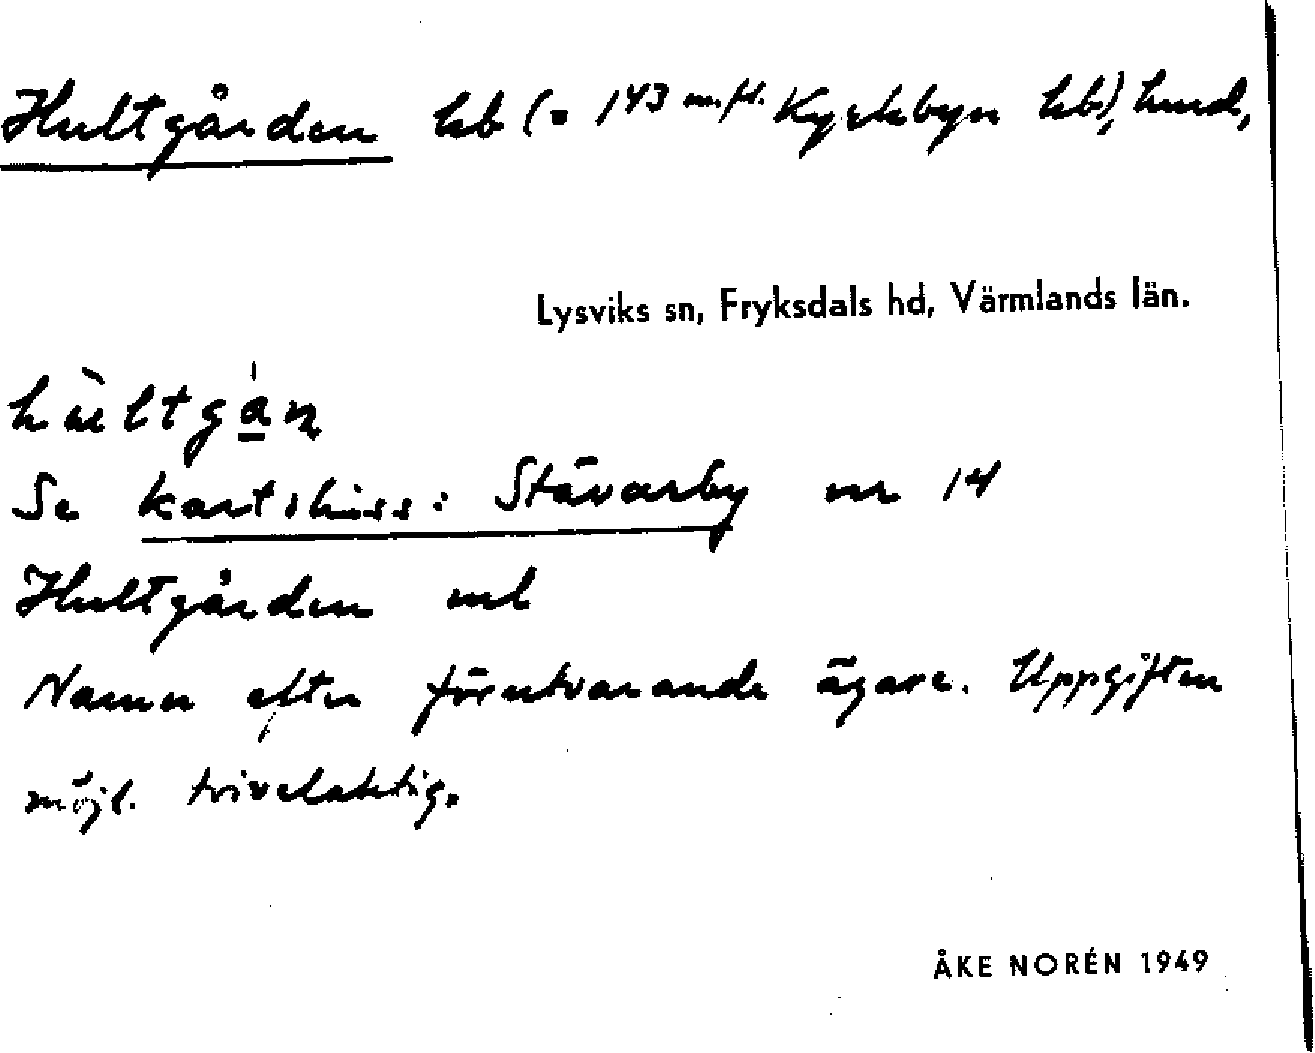 Hultgården hb (= 143 m.fl. Kyrkbyn hb), hmd,
Lysviks sn, Fryksdals hd, Värmlands län.
Se kartskiss: Stävarby nr 14
Hultgården ml
Namn efter förutvarande ägare. Uppgiften
möjl. tvivelaktig.
ÅKE NORÉN 1949